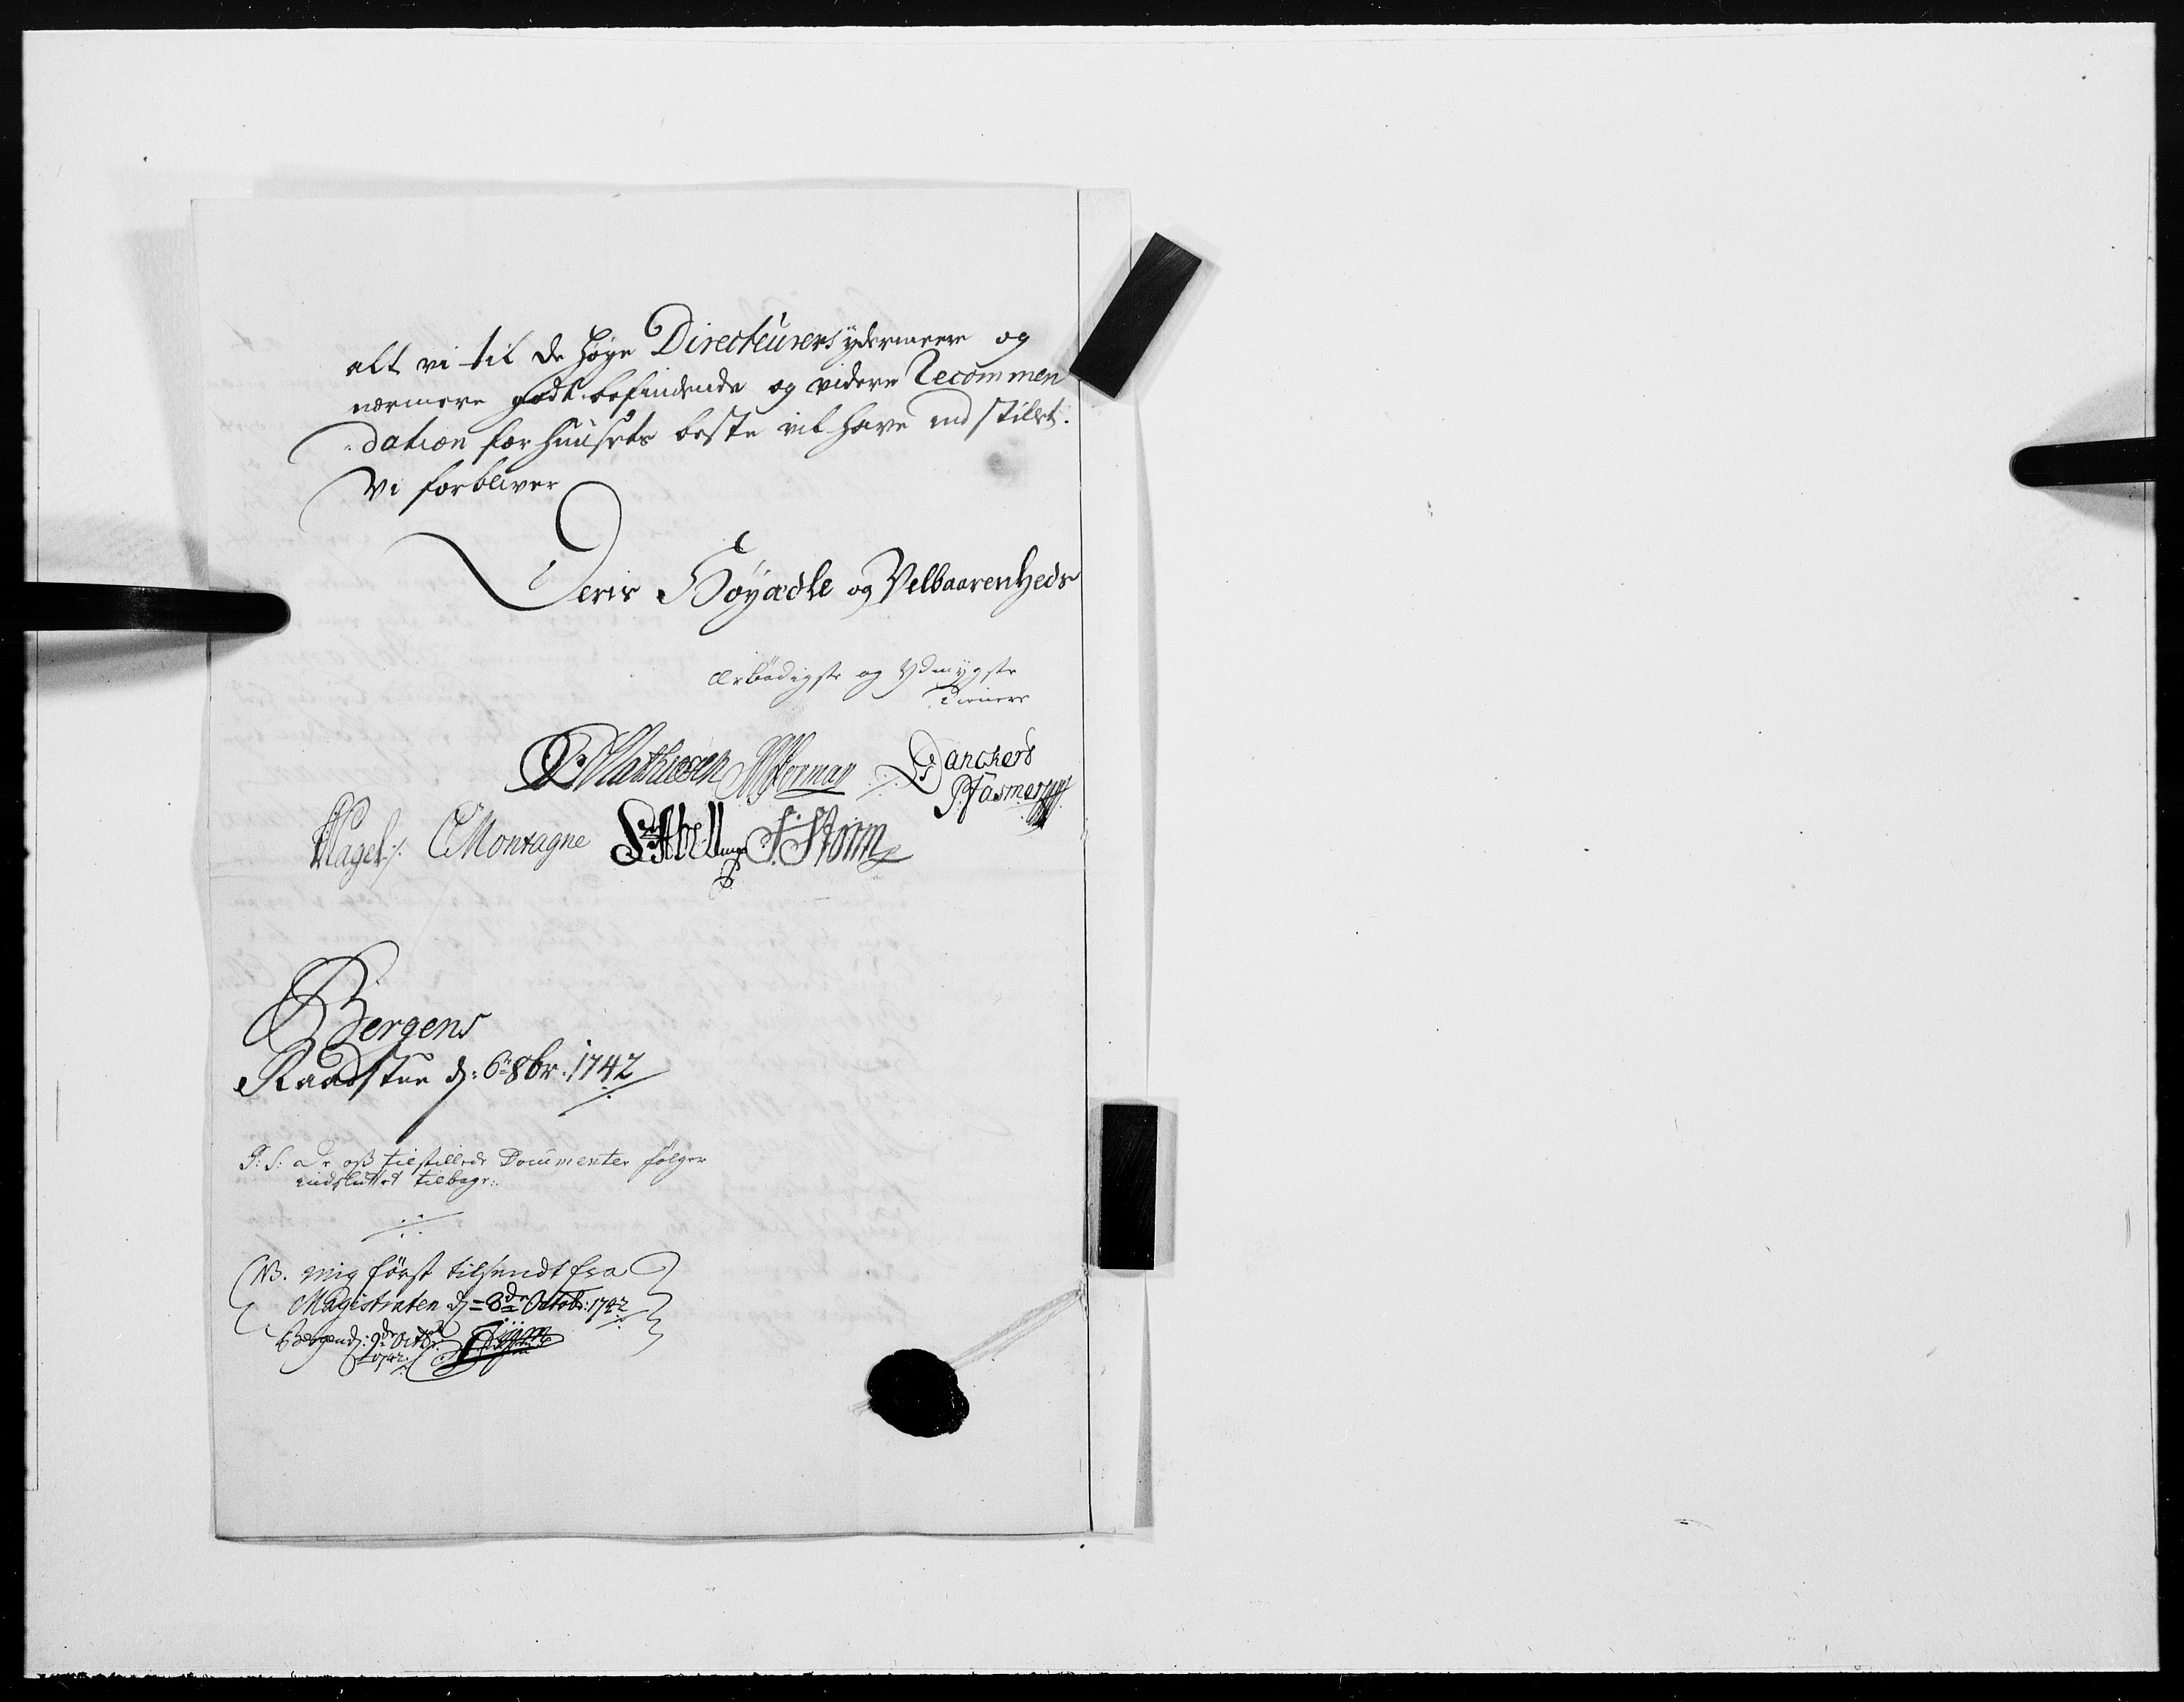 alt vi til de høye Directeurers ydermeere og
nærmere godtbefindende og videre Recommen
dation for huusets beste vil have indstillet.
Vi forbliver
Deris Höyædle og Velbaarenheds
ærbödigste og Ydmygste
Tienere
Mathiesen Danckers
P: Fasmer
Hagel C Montagne F: Storm
Bergens
Raadstue d: 6 8br: 1742
P: S: De oss tilstillede Documenter følger
indsluttet tilbage.
NB. mig først tilsendt fra
Magistraten d= 8de Octobr: 1742
Bergen d: 9de Octbr
1742